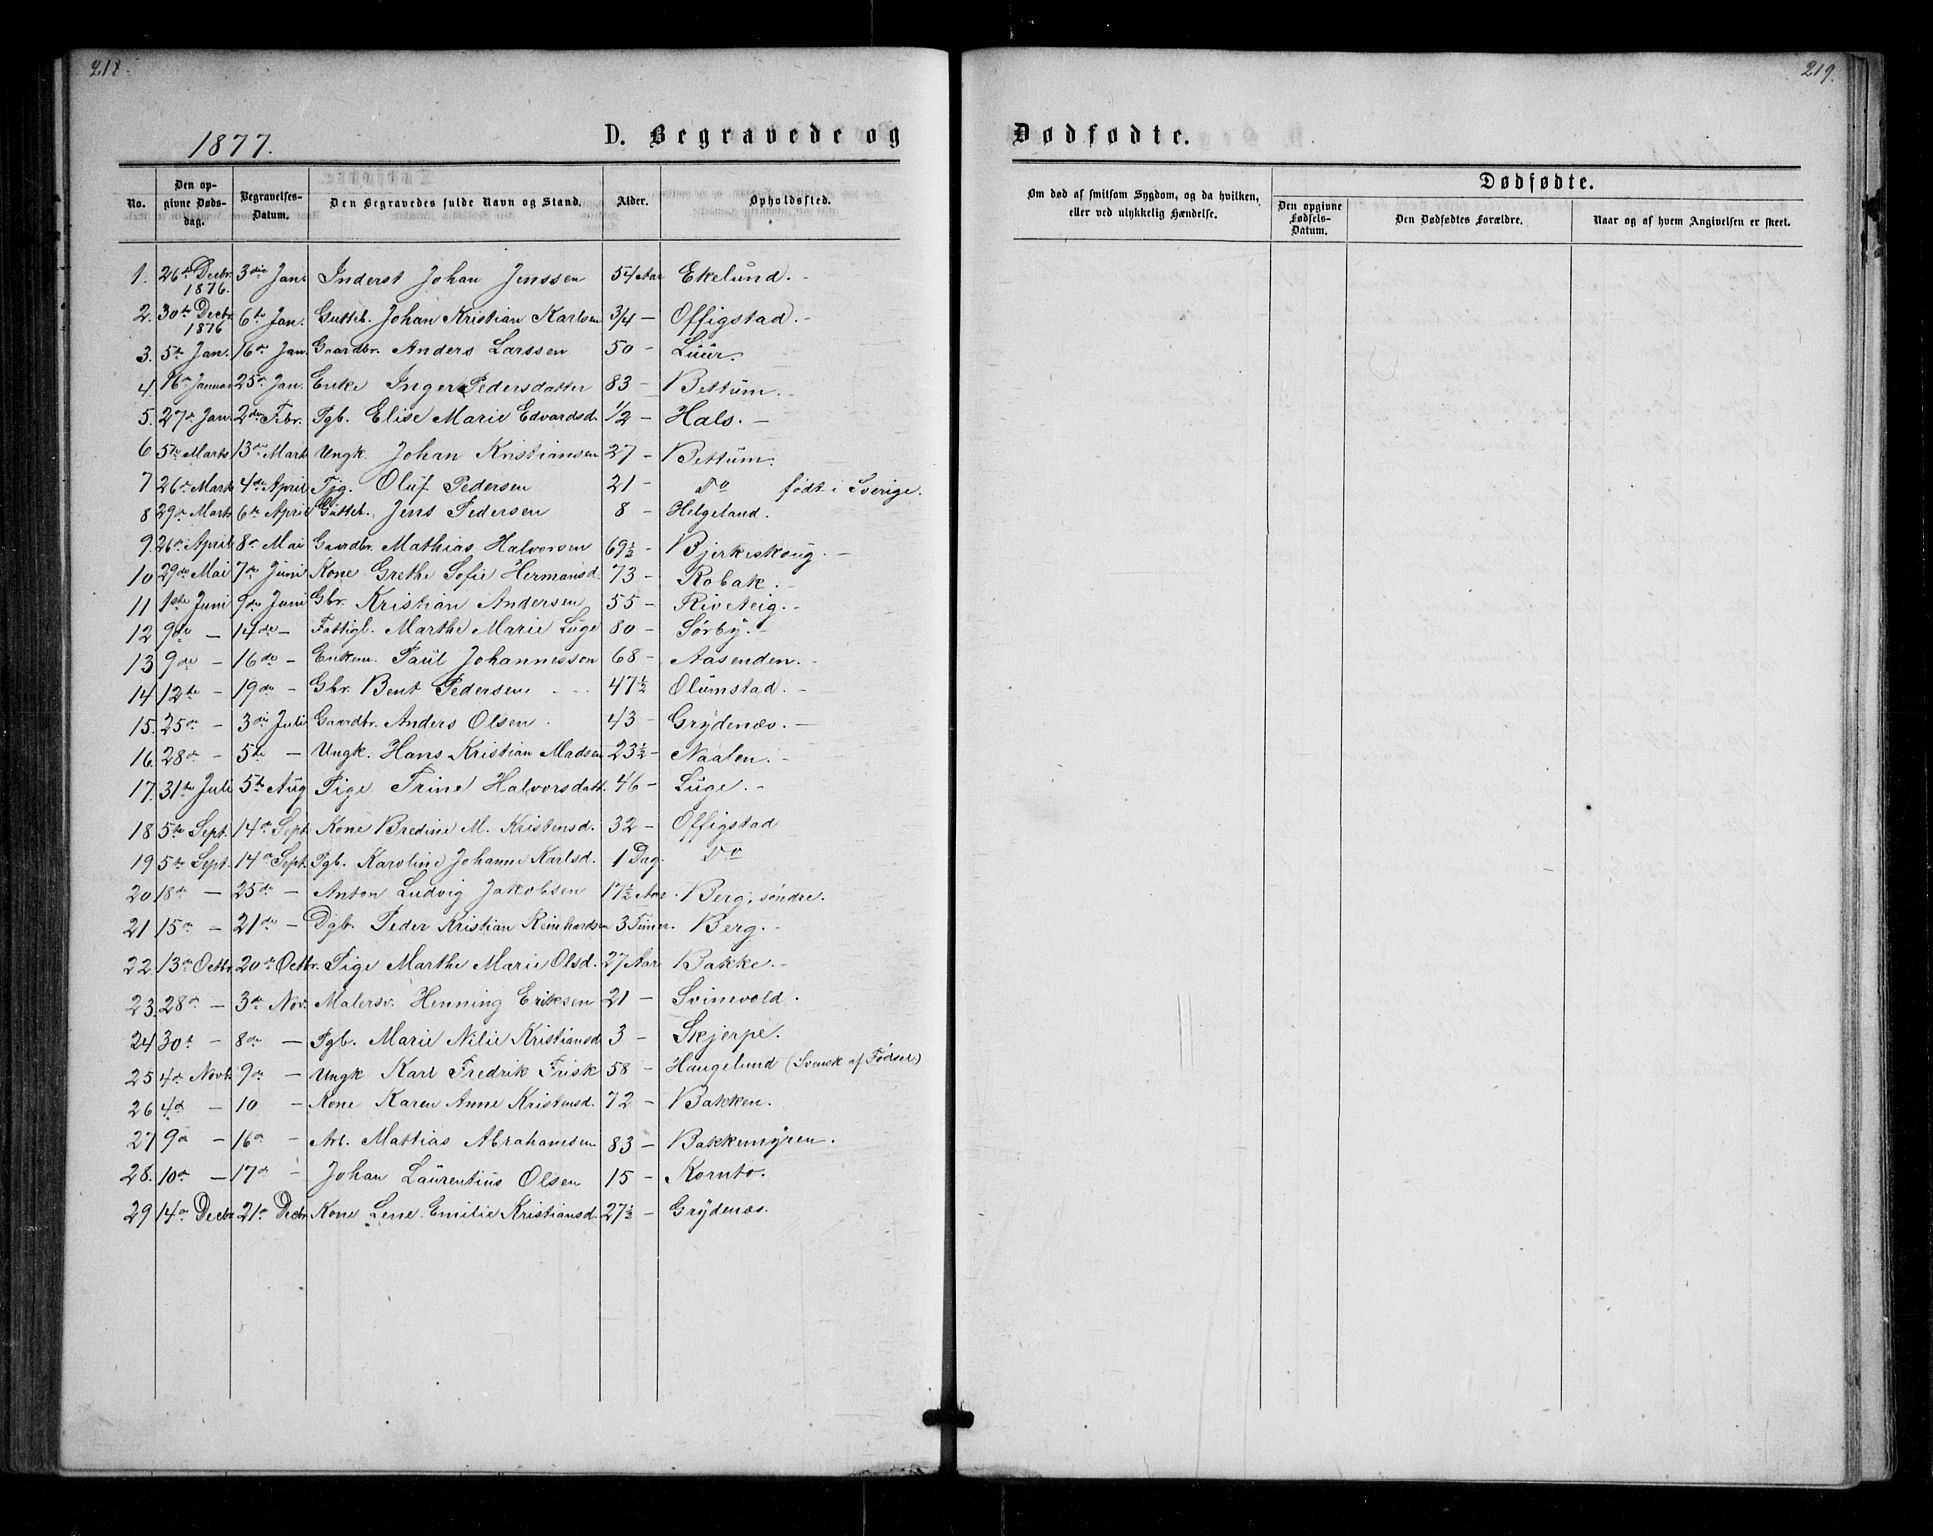 218.
1877.
D. Begravede og
No.
Den op-
givne Døds-
dag.
Begravelses-
Datum.
Den Begravedes fulde Navn og Stand.
Alder.
Opholdssted.
1. 26de Decbr. 1876. 3die Jan. Inderst Johan Jenssen 54 Aar Ekelund. -
2. 30te Decbr 1876 6te Jan. Gutteb. Johan Kristian Karlsen 3/4 - Offigstad. -
3. 5te Jan. 16de Jan. Gaardbr. Anders Larssen 50 - Luur.
4. 16de Januar 25de Jan. Enke Inger Pedersdatter 83 - Bettum. -
5. 27de Jan. 2den Febr. Pgb. Elise Marie Edvardsd. 1/2 - Hals. -
6 5te Marts 13de Marts Ungk. Johan Kristiansen 27 - Bettum.
7 26de Marts 4de April Tjg. Oluf Pedersen 21 - Do født i Sverige.
8 29de Marts 6te April Gutteb. Jens Pedersen 8 - Helgeland.
9. 26de April 8de Mai Gaardbr. Mathias Halvorsen 69½ - Bjerkeskoug. -
10 29de Mai 7de Juni Kone Grethe Sofie Hermansd. 73 - Robak. -
11 1ste Juni 9de Juni Gbr. Kristian Andersen 55 - Riveteig. -
12 9de - 14de - Fattigl. Marthe Marie Luge 80 - Sørby. -
13 9de - 16de - Enkem. Paul Johannessen 68 - Aasenden. -
14 12te - 19de - Gbr. Bent Pedersen 47½ Olumstad. -
15. 25de - 3die Juli Gaardbr. Anders Olsen 43 - Grydenæs. -
16. 28de - 5te - Ungk. Hans Kristian Madsen 23½ - Naalen. -
17. 31te Juli 5te Aug Pige Trine Halvorsdatt. 46 - Luge. -
18 5te Sept. 14de Sept. Kone Bredine M. Kristensd. 32 - Offigstad
19 5te Sept. 14de Sept. Pgb. Karoline Johanne Karlsd. 1 Dag. Do
20 18de - 25de - Anton Ludvig Jakobsen 17½ Aar. Berg, søndre.
21 15de - 21de - Dgb. Peder Kristian Reinhardsen 3 Timer. Berg. -
22. 13de Octbr. 20de Octbr. Pige Marthe Marie Olsd. 27 Aar Bakke. -
23. 28de - 3die Nov. Malersv. Henning Eriksen 21 - Svinevold.
24 30te - 8de - Pgb. Marie Nilie Kristiansd 3 - Skjerpe.
25 4de Novbr 9de - Ungk Karl Fredrik Frisk 58 - Haugelund (Svensk af Fødsel)
26 4de - 10 - Kone Karen Anne Kristensd. 72 - Bakken.
27 9de - 16de - Arb. Mattias Abrahamsen 83 - Bakkemyren.
28. 10de - 17de - Johan Laurentius Olsen 15 - Kornto.
29 14de Decbr 21de Decbr Kone Lene Emilie Kristiansd. 27½ - Grydenæs.
219.
Dødfødte.
Om død af smitsom Sygdom, og da hvilken,
eller ved ulykkelig Hændelse.
Dødfødte.
Den opgivne
Fødsels-
Datum.
Den Dødfødtes Forældre.
Naar og af hvem Angivelsen er skeet.